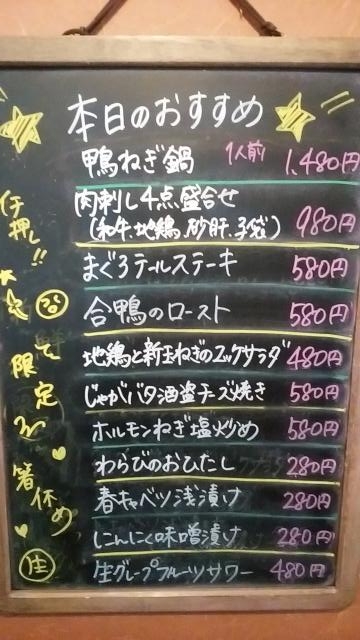 本日のおすすめ
鴨ねぎ鍋 1人前 1,480円
肉刺し4点盛合せ
(和牛.地鶏.砂肝.子袋) 980円
まぐろテールステーキ 580円
合鴨のロースト 580円
地鶏と新玉ねぎのユッケサラダ 480円
じゃがバタ酒盗チーズ焼き 580円
ホルモンねぎ塩炒め 580円
わらびのおひたし 280円
春キャベツ浅漬け 280円
にんにく味噌漬け 280円
生グレープフルーツサワー 480円
仔押し!!
限定
箸休め
生